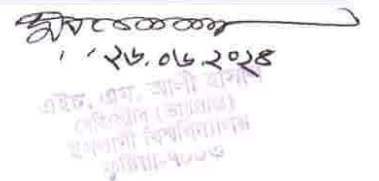 ২৬.০৬.২০২৪
এইচ. এম. আলী হাসান
রেজিস্ট্রার (ভারপ্রাপ্ত)
ইসলামী বিশ্ববিদ্যালয়
কুষ্টিয়া-৭০০৩